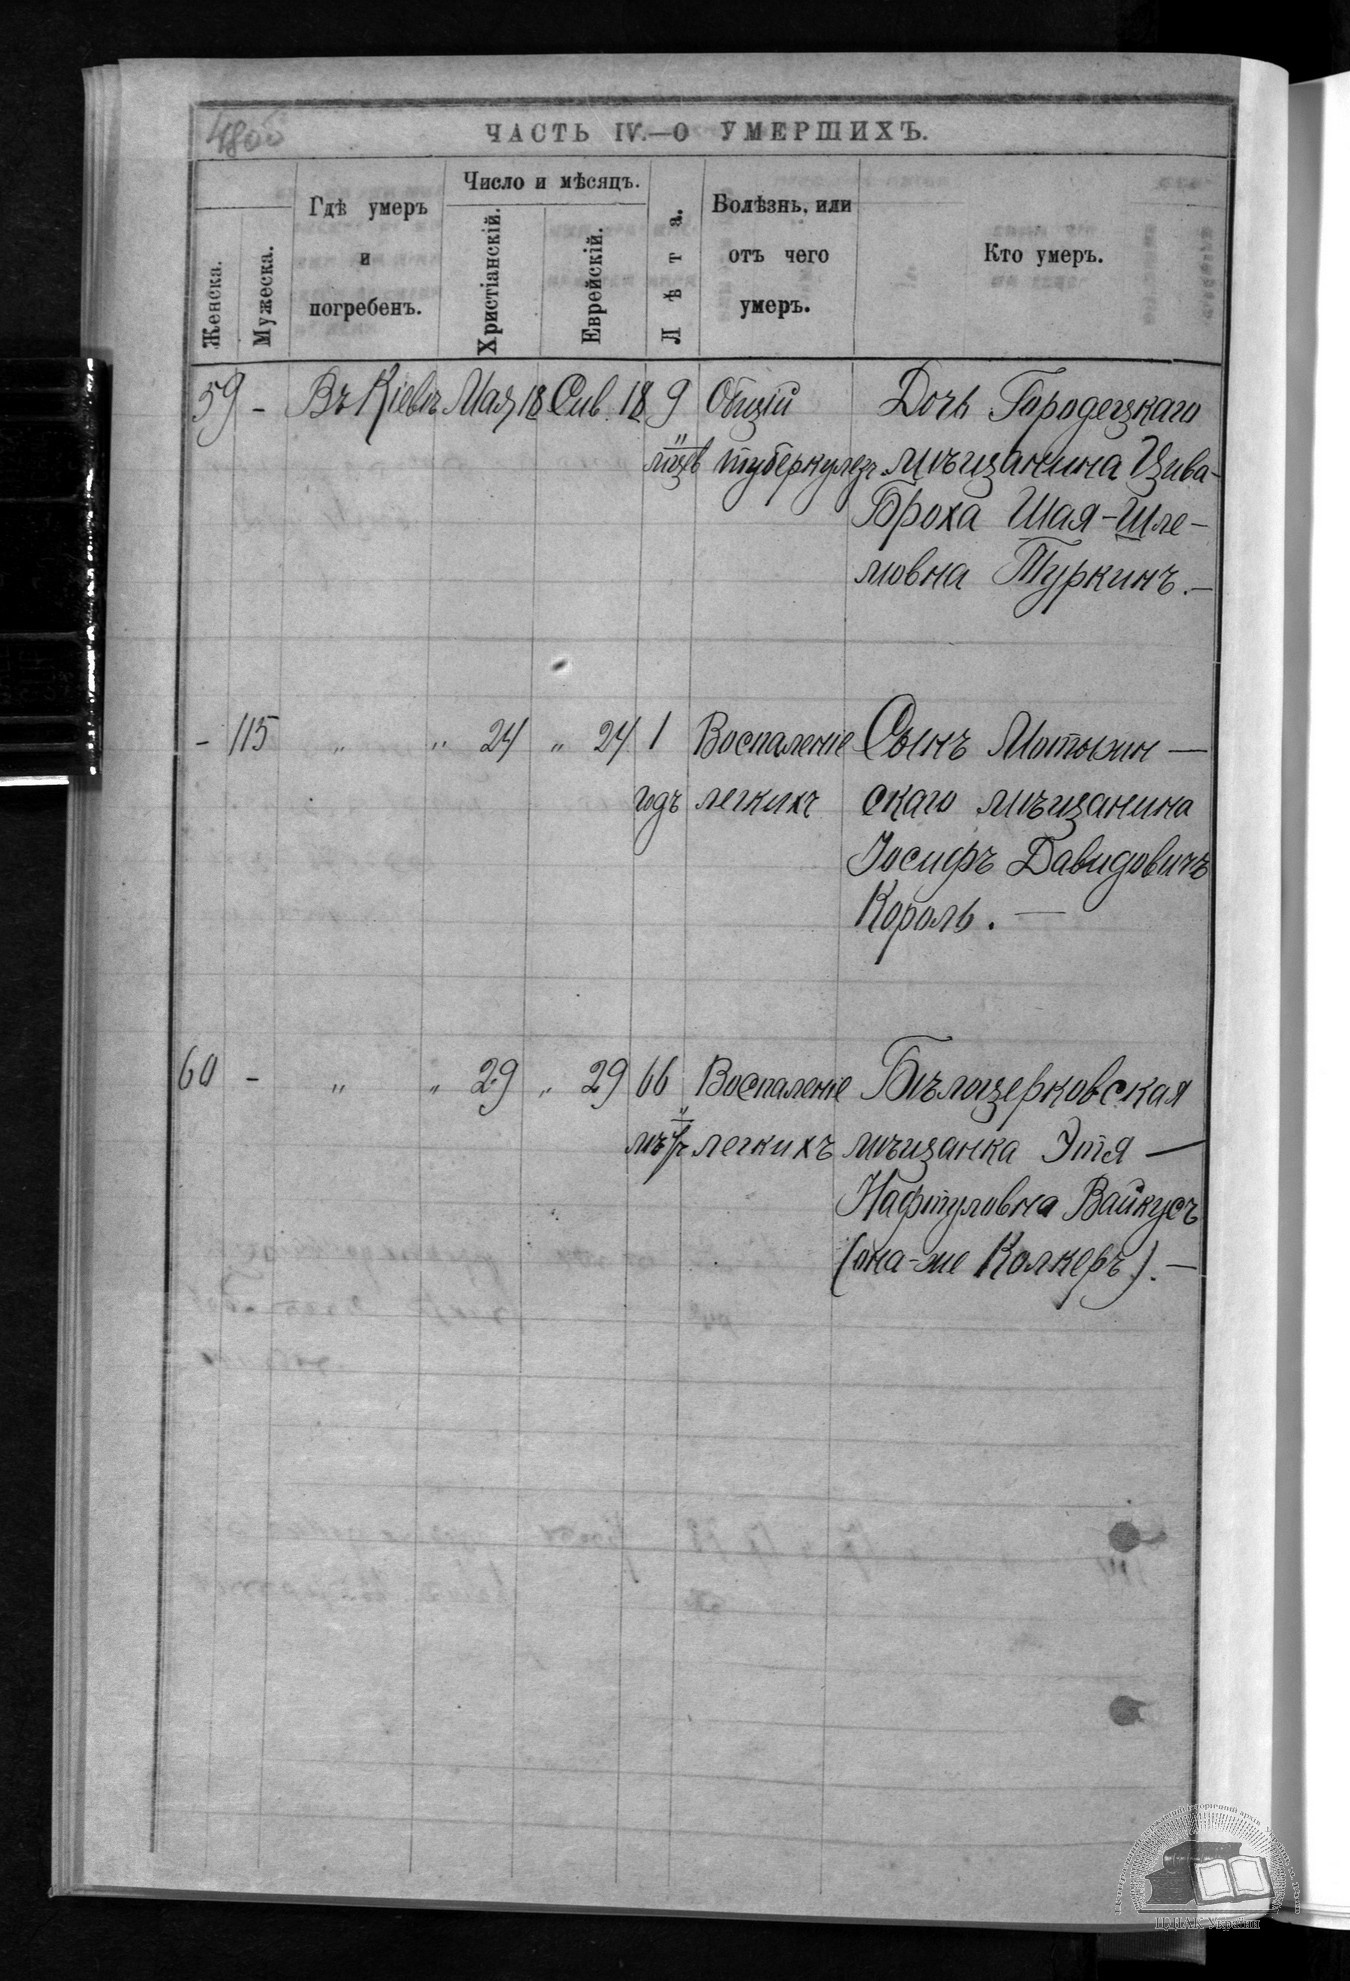 480об
ЧАСТЬ IV.—О УМЕРШИХЪ.
Женска.
Мужеска.
Гдѣ умеръ
и
погребенъ.
Число и мѣсяцъ.
Христіанскій.
Еврейскій.
Лѣта.
Болѣзнь, или
отъ чего
умеръ.
Кто умеръ.
59 - Въ Кіевѣ Мая 18 Сив. 18 9 Общій Дочь Городецкаго
мѣсяцев туберкулезъ мѣщанина Цива-
Броха Шая-Шле-
мовна Туркинъ.—
- 115 " " 24 " 24 1 Воспаленіе Сынъ Мотыжин—
годъ легкихъ скаго мѣщанина
Іосифъ Давидовичъ
Король. —
60 - " " 29 " 29 66 Воспаленіе Бѣлоцерковская
лѣтъ легкихъ мѣщанка Этя —
Нафтуловна Вайкусъ
(она-же Колкеръ). —
ЦДІАК України